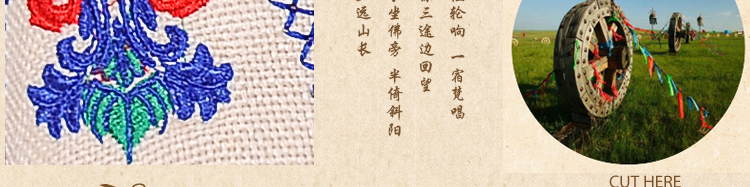 轮响 一宿梵唱
三途边回望
坐佛旁 半倚斜阳
远山长
CUT HERE